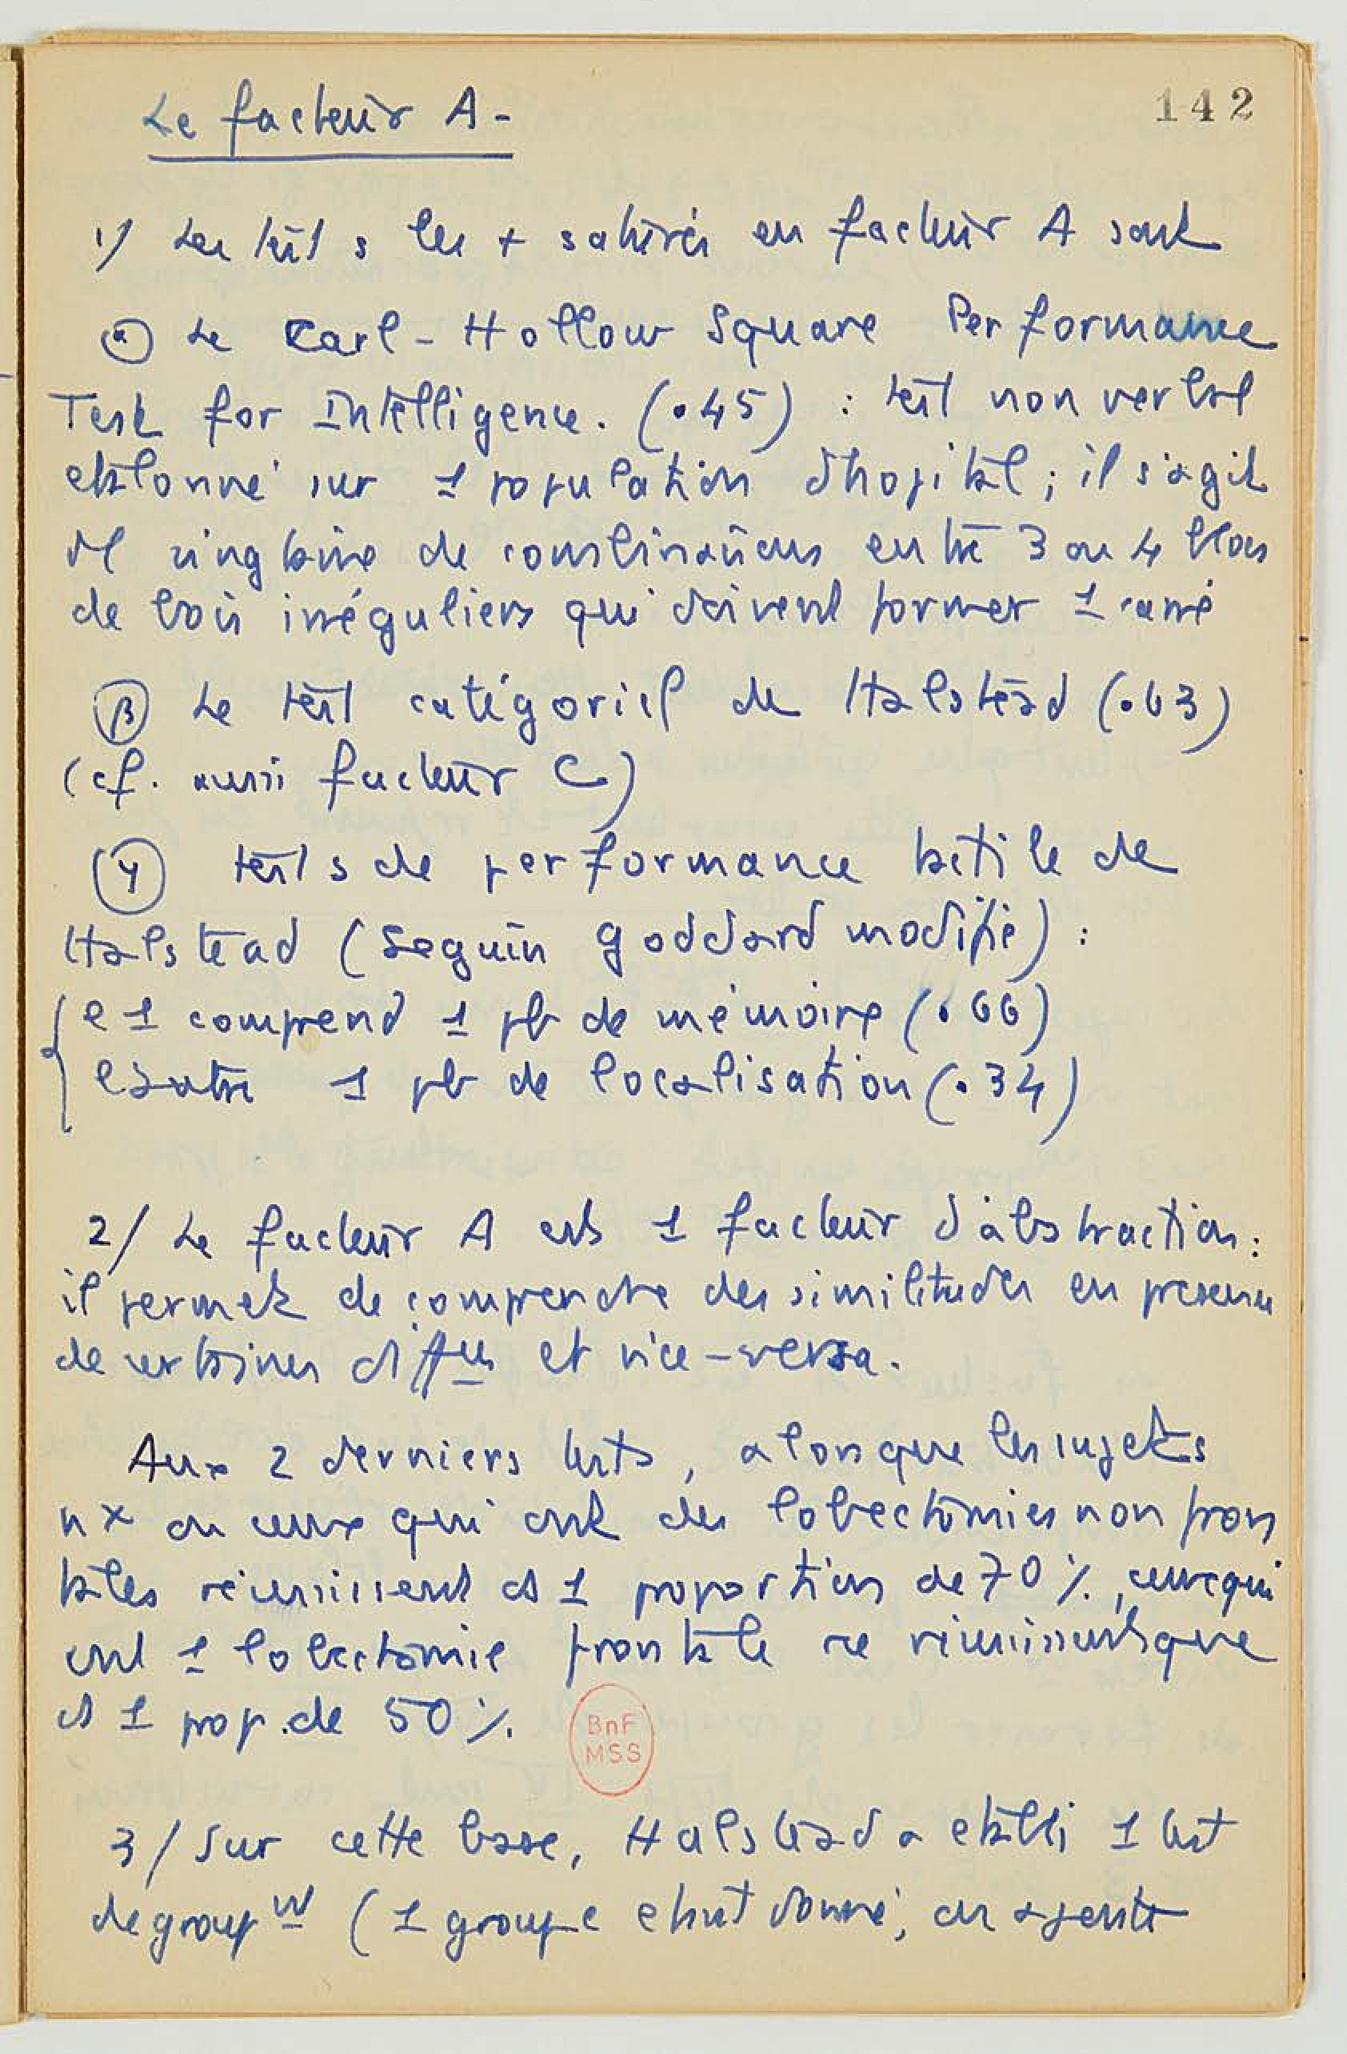 Le facteur A -
142
1/ Les tests les + saturés en facteur A sont
α Le Carl-Hollow Square Performance
Test for Intelligence. (.45) : test non verbal
etalonné sur 1 population d'hopital ; il s'agit
d'1 vingtaine de combinaisons entre 3 ou 4 blocs
de bois irréguliers qui doivent former 1 carré
β Le test catégoriel de Halstead (.63)
(cf. aussi facteur C)
γ tests de performance tactile de
Halstead (Seguin Goddard modifié) :
l'1 comprend 1 pb de mémoire (.66)
l'autre 1 pb de localisation (.34)
2/ Le facteur A est 1 facteur d'abstraction :
il permet de comprendre des similitudes en presence
de certaines diffces et vice-versa.
Aux 2 derniers tests, alors que les sujets
nx ou ceux qui ont des lobectomies non fron
tales réunissent ds 1 proportion de 70 %, ceux qui
ont 1 lobectomie frontale ne réunissent que
ds 1 prop. de 50 %.
BnF
MSS
3/ Sur cette base, Halstead a etabli 1 test
de groupt (1 groupe etant donné, on ajoute